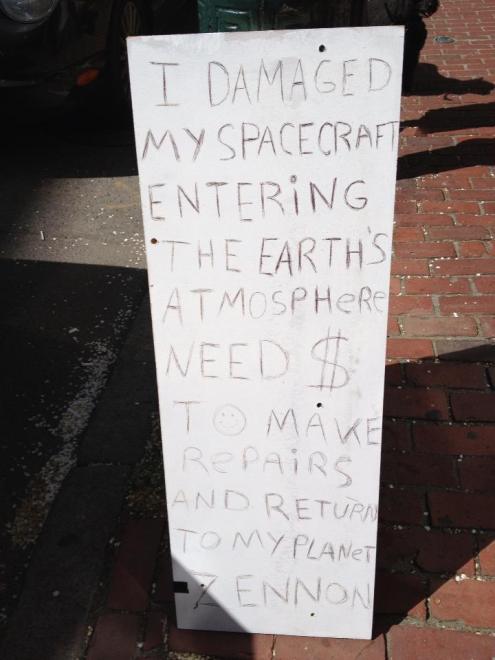 I DAMAGED
MY SPACECRAFT
ENTERiNG
THE EARTH'S
ATMOSPHeRe
NEED $
TO MAKE
RePAiRS
AND RETURN
TO MY PLANeT
ZENNON